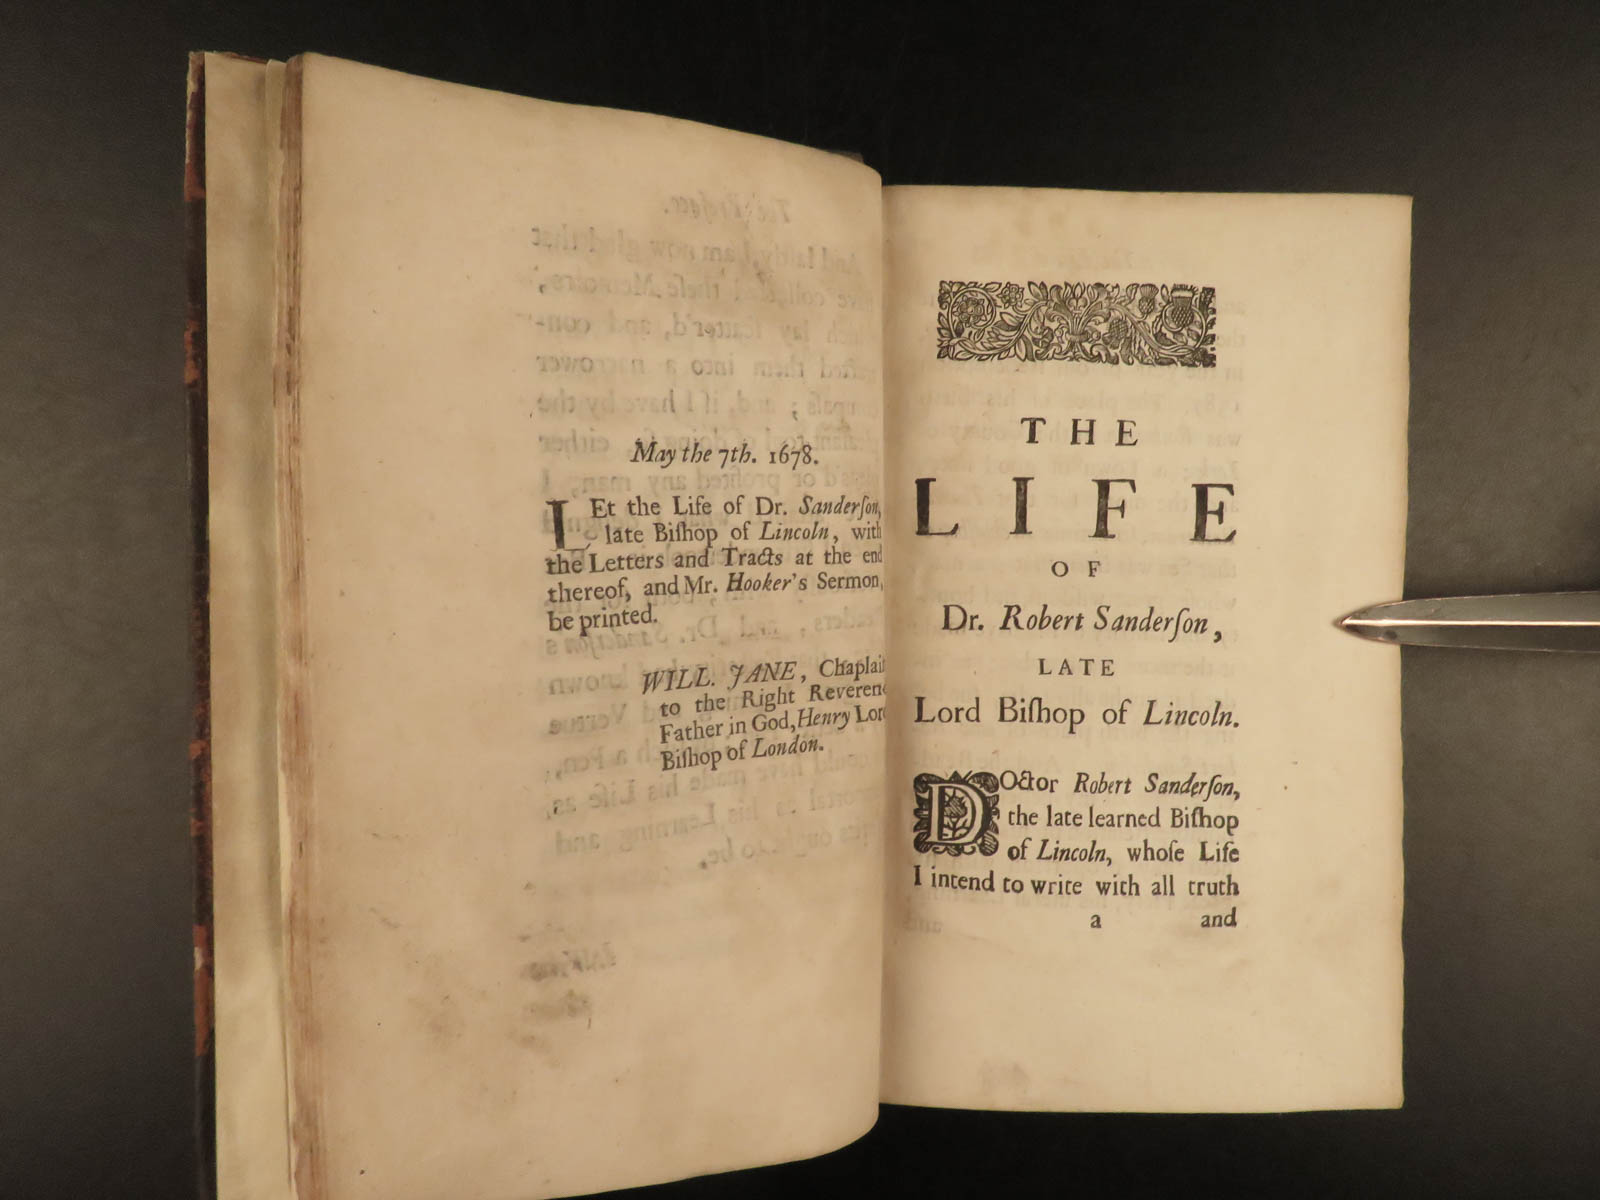 May the 7th. 1678.
LEt the Life of Dr. Sanderſon,
late Biſhop of Lincoln, with
the Letters and Tracts at the end
thereof, and Mr. Hooker's Sermon,
be printed.
WILL. JANE, Chaplain
to the Right Reverend
Father in God, Henry Lord
Biſhop of London.
THE
LIFE
OF
Dr. Robert Sanderſon,
LATE
Lord Biſhop of Lincoln.
DOctor Robert Sanderſon,
the late learned Biſhop
of Lincoln, whoſe Life
I intend to write with all truth
a and